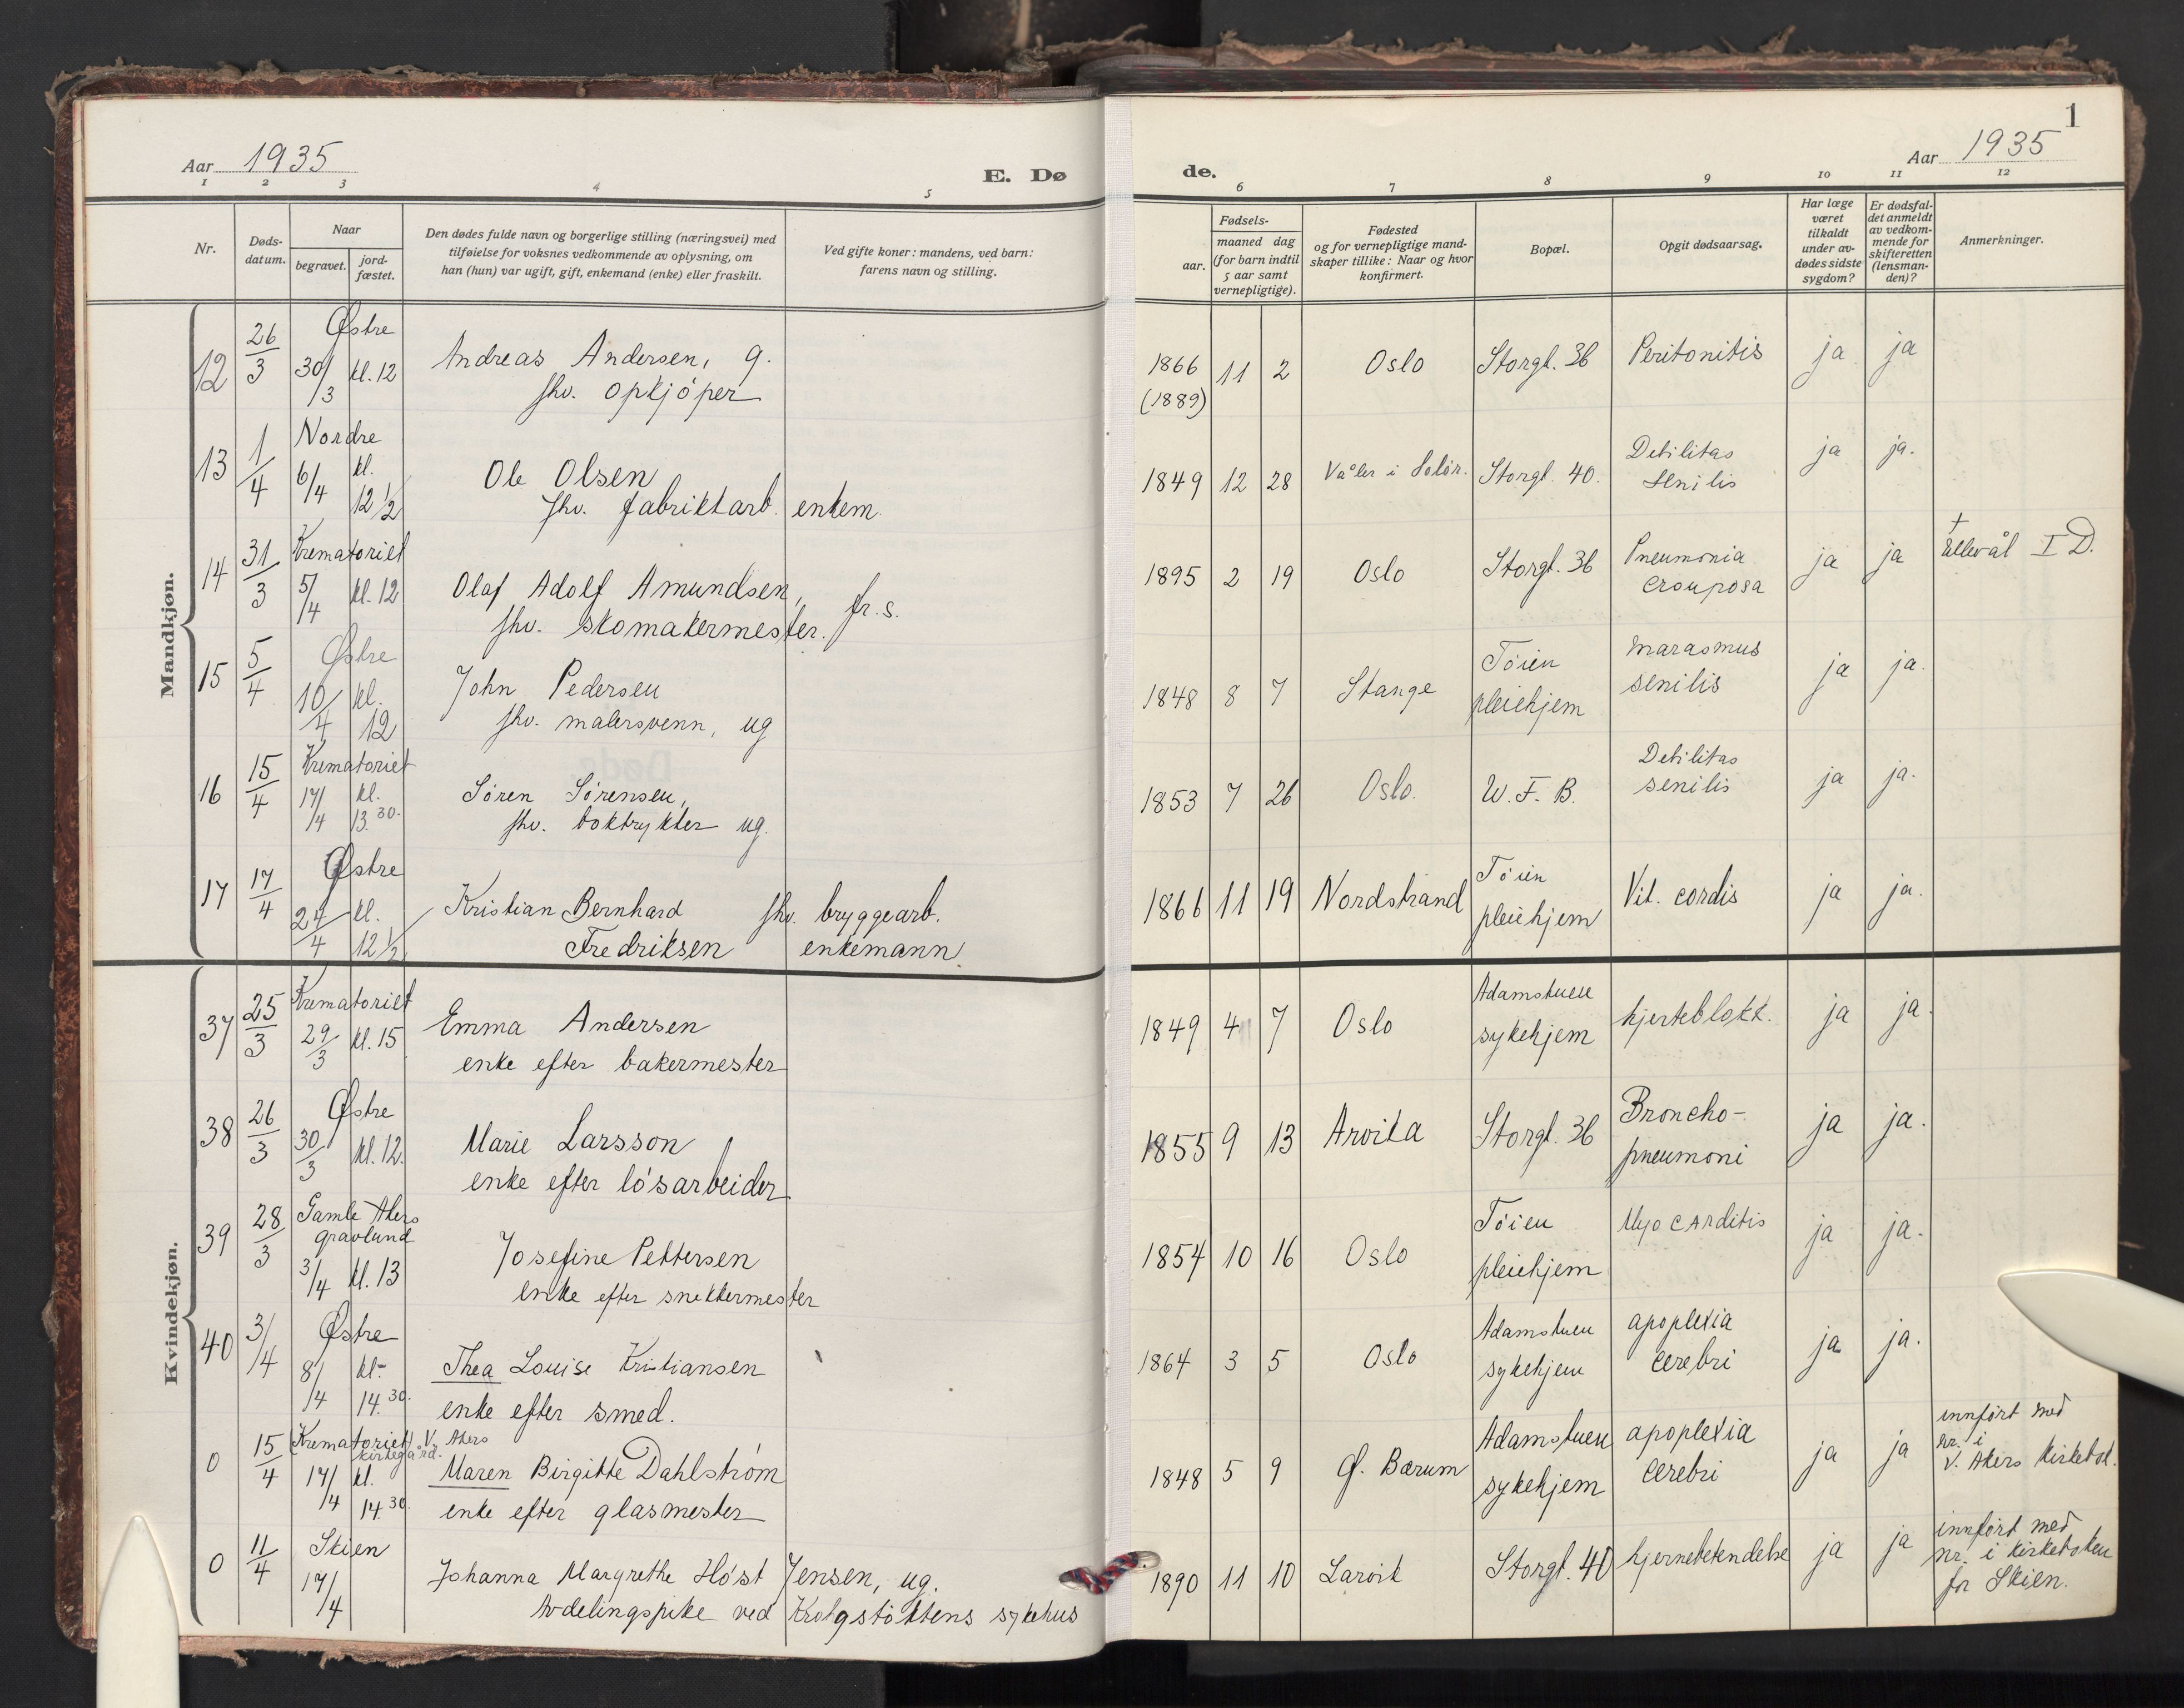 1
Aar 1935
E. Dø
de.
Aar 1935
1 2 3 4 5 6 7 8 9 10 11 12
Nr.
Døds-
datum.
Naar
begravet.
jord-
fæstet.
Den dødes fulde navn og borgerlige stilling (næringsvei) med
tilføielse for voksnes vedkommende av oplysning, om
han (hun) var ugift, gift, enkemand (enke) eller fraskilt.
Ved gifte koner: mandens, ved barn:
farens navn og stilling.
Fødsels-
aar.
maaned dag
(for barn indtil
5 aar samt
vernepligtige).
Fødested
og for vernepligtige mand-
skaper tillike: Naar og hvor
konfirmert.
Bopæl.
Opgit dødsaarsag.
Har læge
været
tilkaldt
under av-
dødes sidste
sygdom?
Er dødsfal-
det anmeldt
av vedkom-
mende for
skifteretten
(lensman-
den)?
Anmerkninger.
Mandkjøn.
12 26/3 Østre 30/3 kl. 12
Andreas Andersen, g.
fhv. opkjøper
1866 11 2 Oslo Storgt. 36 Peritonitis ja ja
(1889)
13 1/4 Nordre 6/4 kl. 12 1/2
Ole Olsen
fhv. fabrikkarb. enkem.
1849 12 28 Våler i Solør. Storgt. 40. Debilitas
senilis ja ja.
14 31/3 Krematoriet 5/4 kl. 12
Olaf Adolf Amundsen,
fhv. skomakermester. fr. s.
1895 2 19 Oslo Storgt. 36 Pneumonia
crouposa ja ja
†
Ullevål I D.
15 5/4 Østre 10/4 kl. 12
John Pedersen
fhv. malersvenn, ug
1848 8 7 Stange Tøien
pleiehjem Marasmus
senilis ja ja.
16 15/4 Krematoriet 17/4 kl. 13.30.
Søren Sørensen,
fhv. boktrykker ug.
1853 7 26 Oslo. W. F. B. Debilitas
senilis ja ja.
17 17/4 Østre 24/4 kl. 12 1/2
Kristian Bernhard fhv. bryggearb.
Fredriksen enkemann.
1866 11 19 Nordstrand Tøien
pleiehjem Vit. cordis ja ja.
Kvindekjøn.
37 25/3 Krematoriet 29/3 kl. 15
Emma Andersen
enke efter bakermester
1849 4 7 Oslo Adamstuen
sykehjem hjerteblokk. ja ja.
38 26/3 Østre 30/3 kl. 12.
Marie Larsson
enke efter løsarbeider
1855 9 13 Arvika Storgt. 36 Broncho-
pneumoni ja ja.
39 28/3 Gamle Akers
gravlund 3/4 kl. 13
Josefine Pettersen
enke efter snekkermester
1854 10 16 Oslo Tøien
pleiehjem Myocarditis ja ja.
40 3/4 Østre 8/4 kl. 14.30.
Thea Louise Kristiansen
enke efter smed.
1864 3 5 Oslo Adamstuen
sykehjem apoplexia
cerebri ja ja.
0 15/4 Krematoriet V. Akers
kirkegård. 17/4 kl. 14.30.
Maren Birgitte Dahlstrøm
enke efter glasmester
1848 5 9 Ø. Bærum Adamstuen
sykehjem apoplexia
cerebri ja ja
innført med
nr. i
V. Akers kirkebok.
0 11/4 Skien 17/4
Johanna Margrethe Høst Jensen, ug.
Avdelingspike ved Krohgstøttens sykehus
1890 11 10 Larvik Storgt. 40 hjernebetendelse ja ja
innført med
nr. i kirkeboken
for Skien.